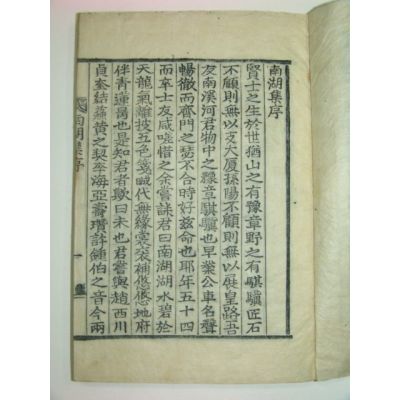 南湖集序
賢士之生於世猶山之有豫章野之有騏驥匠石
不顧則無以支大厦孫陽不顧則無以展皇路吾
友南溪河君物中之豫章騏驥也早業公車名聲
暢徹而齊門之瑟不合時好兹命也耶年五十四
而卒士友咸嗟惜之余嘗誄君曰南湖湖水碧於
天龍氣離披五色箋代無緣裳袞補悠悠地府
伴青蓮曷也是知君者歟曰未也君嘗與趙西川
貞奎結蕭黃之契李海亞壽瓚許鍾伯之音今兩
南湖集序
一